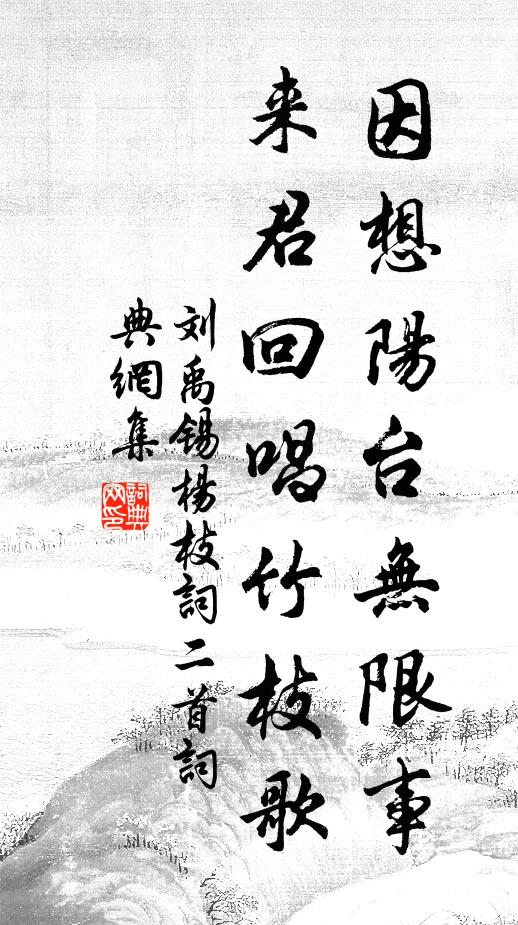 因想陽台無限事
来君回唱竹枝歌
刘禹锡楊枝詞二首詞
典網集
詞典
网印